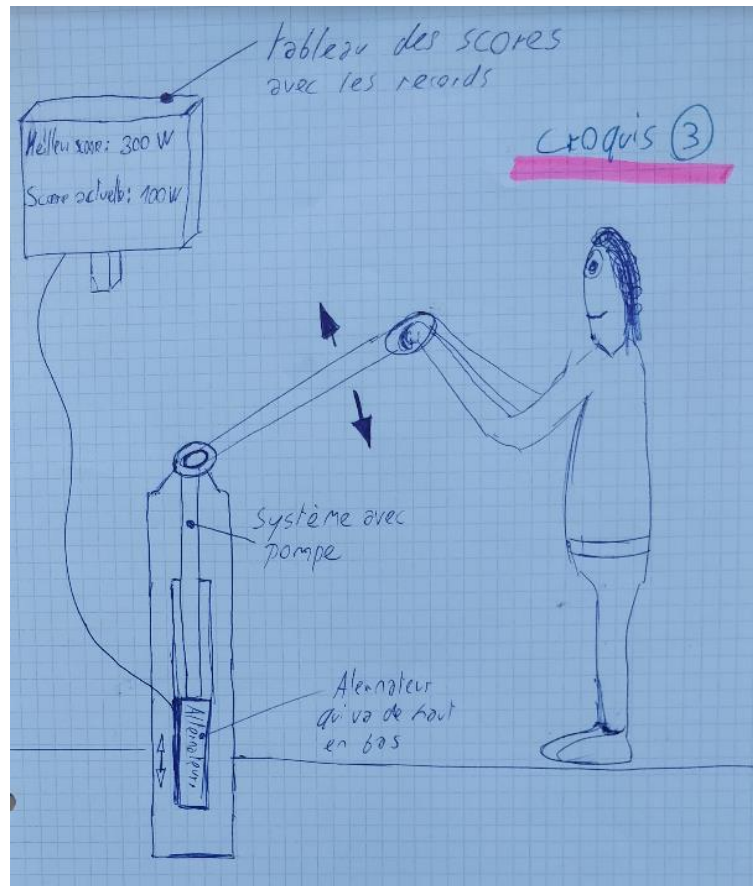 tableau des scores
avec les records
croquis 3
Meilleu score: 300 W
Score actuele: 100 W
système avec
pompe
Alernateur
qui va de haut
en bas
Alternateur.